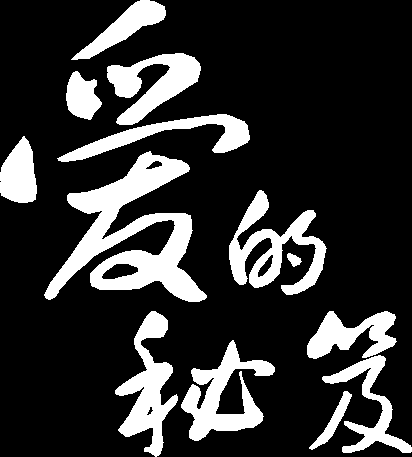 爱的
秘笈